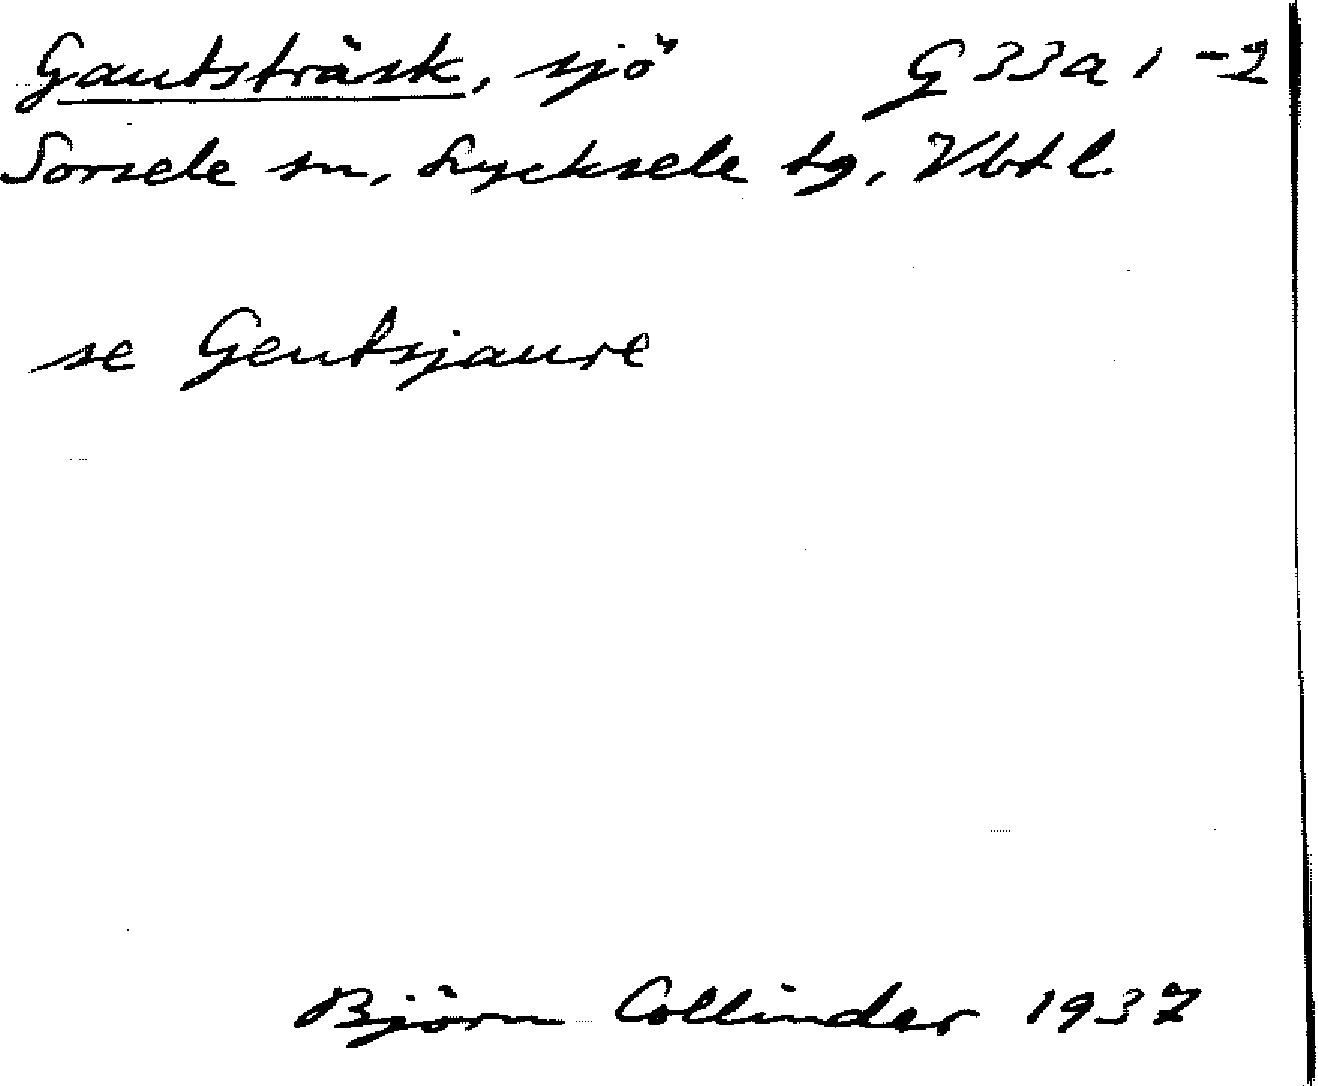 Gautsträsk, sjö G 33a 1-2
Sorsele sn, Lycksele tg, Vbtl.
se Geutsjaure
Björn Collinder 1937